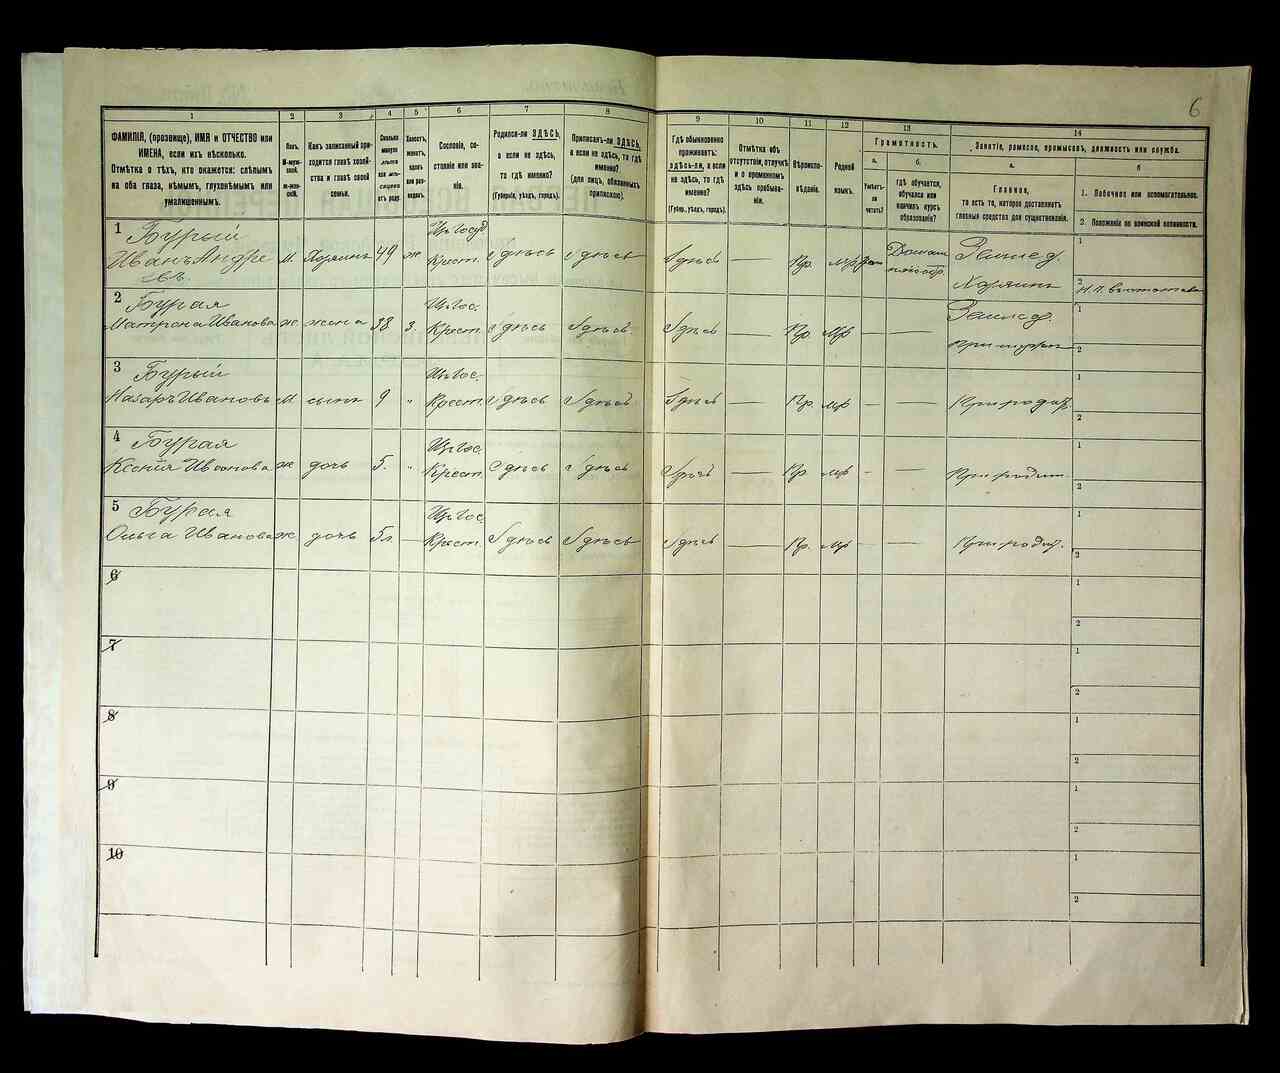 6
1 2 3 4 5 6 7 8 9 10 11 12 13 14
ФАМИЛІЯ, (прозвище), ИМЯ и ОТЧЕСТВО или
ИМЕНА, если ихъ нѣсколько.
Отмѣтка о тѣхъ, кто окажется: слѣпымъ
на оба глаза, нѣмымъ, глухонѣмымъ или
умалишеннымъ.
Полъ.
М-муж-
ской.
ж-жен-
скій.
Какъ записанный при-
ходится главѣ хозяй-
ства и главѣ своей
семьи.
Сколько
минуло
лѣтъ
или мѣ-
сяцевъ
отъ роду.
Холостъ,
женатъ,
вдовъ
или раз-
веденъ.
Сословіе, со-
стояніе или зва-
ніе.
Родился-ли ЗДѢСЬ,
а если не здѣсь,
то гдѣ именно?
(Губернія, уѣздъ, городъ).
Приписанъ-ли ЗДѢСЬ,
а если не здѣсь, то гдѣ
именно?
(для лицъ, обязанныхъ
припискою).
Гдѣ обыкновенно
проживаетъ:
здѣсь-ли, а если
не здѣсь, то гдѣ
именно?
(Губер., уѣздъ, городъ).
Отмѣтка объ
отсутствіи, отлучкѣ
и о временномъ
здѣсь пребыва-
ніи.
Вѣроиспо-
вѣданіе.
Родной
языкъ.
Грамотность.
а.
Умѣетъ-
ли
читать?
б.
гдѣ обучается,
обучался или
кончилъ курсъ
образованія?
Занятіе, ремесло, промыселъ, должность или служба.
а.
Главное,
то есть то, которое доставляетъ
главныя средства для существованія.
б
1. Побочное или вспомогательное.
2. Положеніе по воинской повинности.
1 Бурый
Иванъ Андре
евъ м Хозяинъ 49 ж Изъ Госуд Крест. здѣсь здѣсь здѣсь — Пр. мр Домаш Землед. Хозяинъ 1 2
2 Бурая
Матрона Иванова ж жена 38 з. Изъ Гос. Крест. здѣсь здѣсь здѣсь — Пр. мр — — Землед. 1 2
3 Бурый
Назаръ Ивановъ м сынъ 9 " Изъ Гос. Крест. здѣсь здѣсь здѣсь — Пр. мр — — При родит. 1 2
4 Бурая
Ксенія Иванова ж дочь 5. " Изъ Гос. Крест. здѣсь здѣсь здѣсь — Пр мр — — При родит. 1 2
5 Бурая
Ольга Иванова ж дочь — Изъ Гос. Крест. здѣсь здѣсь здѣсь — Пр. мр — — При родит. 1 2
6 1 2
7 1 2
8 1 2
9 1 2
10 1 2